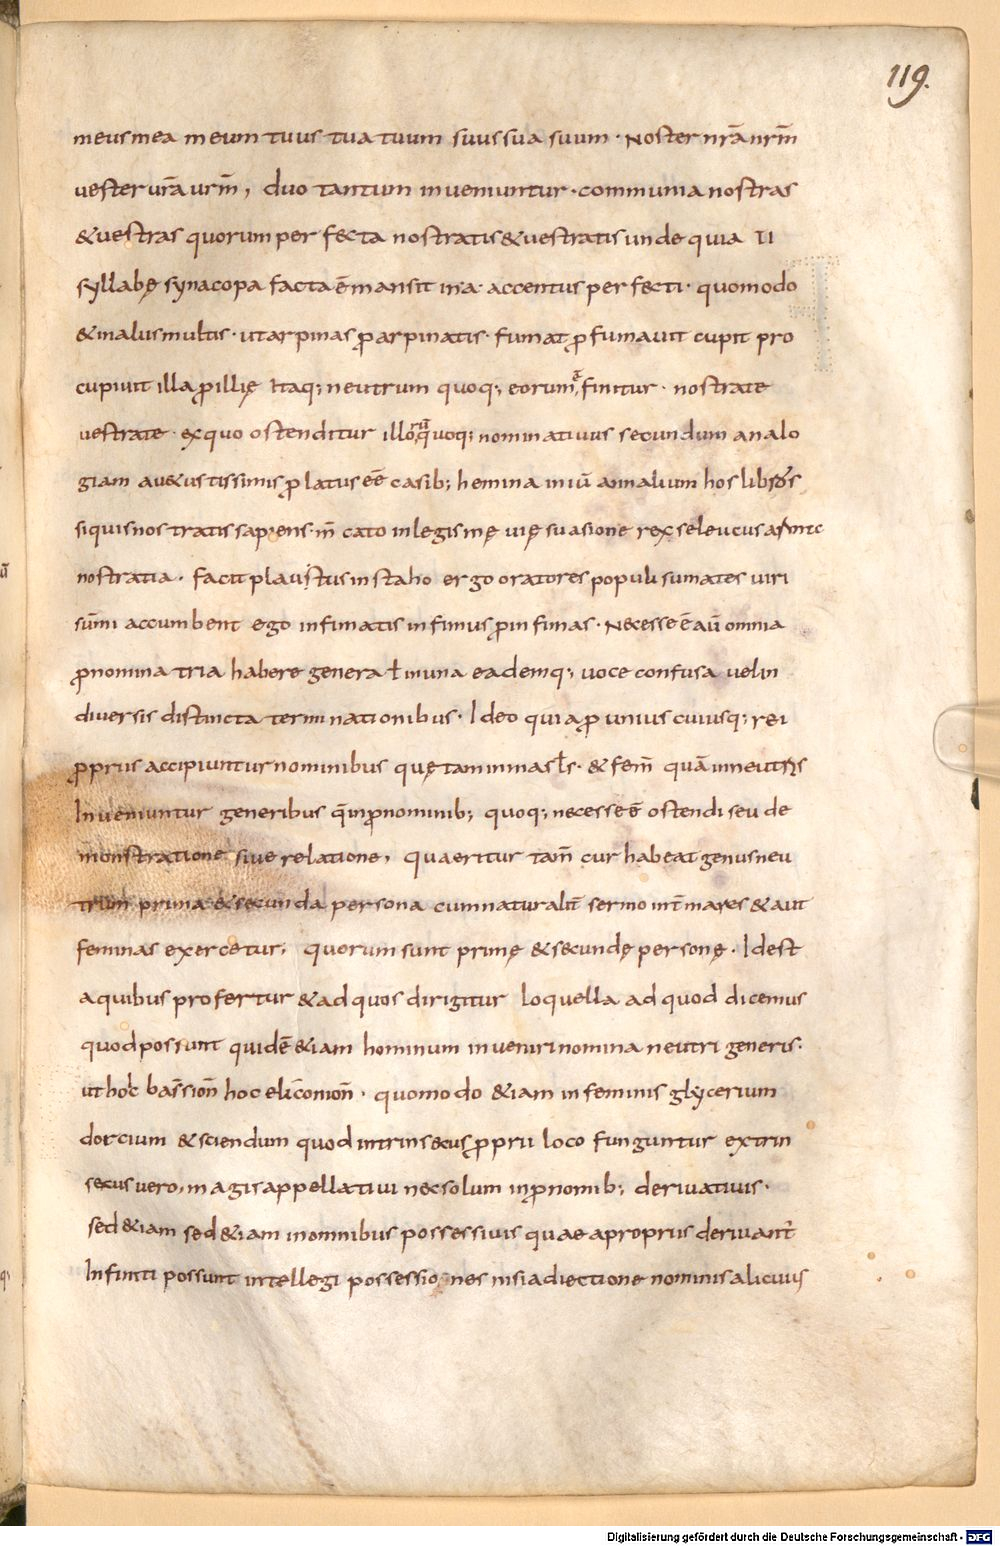 119.
meus mea meum tuus tua tuum suus sua suum · Noster nr̄a nr̄m
uester ur̄a ur̄m, duo tantum inueniuntur · communia nostras
& uestras quorum perfecta nostratis & uestratis unde quia TI
syllabę synacopa facta ē mansit in a· accentus perfecti · quomodo
& in alus multis · ut arpinas ꝓ arpinatis · fumat ꝓ fumauit cupit pro
cupiuit illa ꝓ illię Itaq; neutrum quoq; eorum, e finitur · nostrate
uestrate · ex quo ostenditur illo quoq; nominatiuus secundum analo
giam au&ustissimis ꝓlatus eē casib; hemina in iū annalium hos libros
siquis nostratis sapiens · m̄ cato in legis mę uię suasione rex seleucus
nostratia · facit plaustus in staho ergo oratores populi sumates uiri
sum̄i accumbent ego infimatis infimus ꝓ infimas · Necesse ē aū omnia
ꝓnomina tria habere genera ƚ in una eademq; uoce confusa uel in
diuersis distincta terminationibus · Ideo quia ꝓ unius cuiusq; rei
ꝓpriis accipiuntur nominibus quę tam in masƚs · & fem̄ quā in neutris
Inueniuntur generibus q̄ in ꝓnominib; quoq; necesse ē ostendi seu de
monstratione siue relatione, quaeritur tam̄ cur habeat genus neu
trum prima & secunda persona cum naturalit̄ sermo int̄ mares & aut
feminas exercetur; quorum sunt primę & secundę personę · Idest
a quibus profertur & ad quos dirigitur loquella ad quod dicemus
quod possunt quidē &iam hominum inueniri nomina neutri generis.
ut hoc bas̄sion̄ hoc elic̄onion̄ · quomodo &iam in feminis glycerium
dorcium & sciendum quod intrinsecus ꝓprii loco funguntur extrin
secus uero, magis appellatiui nec solum in ꝓnomib; deriuatiuis ·
sed &iam sed &iam in omnibus possessiuis quae a propriis deriuant̄
Infiniti possunt intellegi possessiones nisi adiectione nominis alicuius
Digitalisierung gefördert durch die Deutsche Forschungsgemeinschaft - DFG